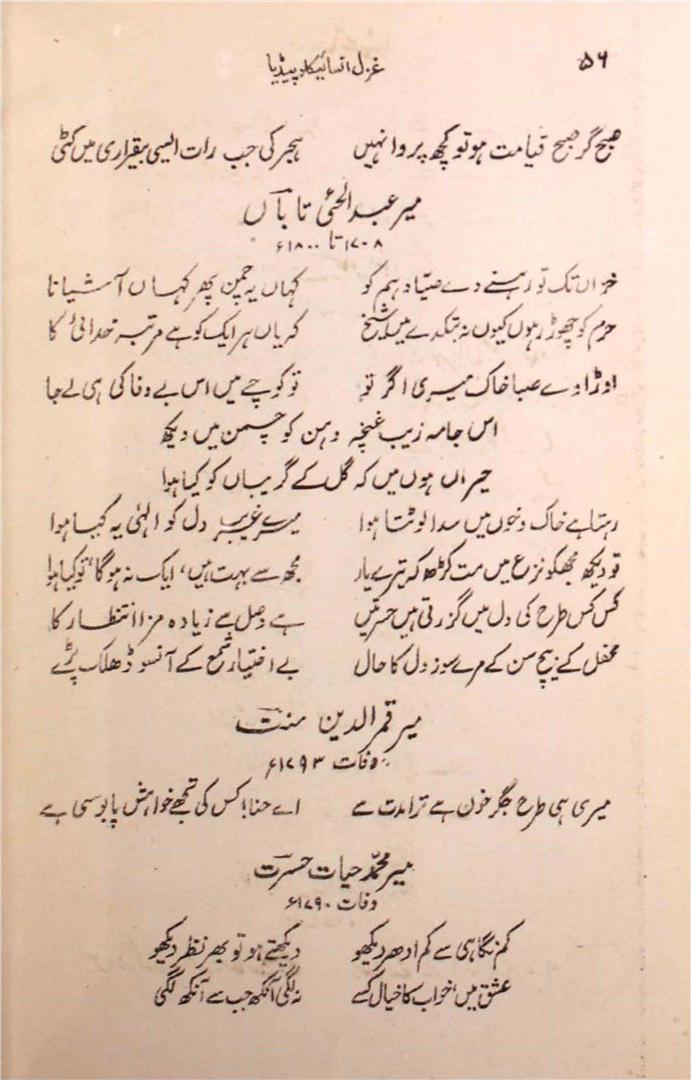 ۵۶ غزل انسائیکلوپیڈیا
صبح گر صبح قیامت ہو تو کچھ پروا نہیں ہجر کی جب رات ایسی بیقراری میں کٹی
میر عبدالحئی تاباں
۱۷۰۸ تا ۱۸۰۰ء
خزاں تک تو رہنے دے صیّاد ہم کو کہاں یہ چمن پھر کہاں آشیانا
حرم کو چھوڑ رہوں کیوں نہ بتکدے میں شیخ کہ یاں ہر ایک کو ہے مرتبہ خدائی کا
اوڑاوے صبا خاک میری اگر تو تو کوچے میں اس بے وفا کی ہی لے جا
اس جامہ زیب غنچہ دہن کو چمن میں دیکھ
حیراں ہوں میں کہ گل کے گریباں کو کیا ہوا
رہتا ہے خاک و خوں میں سدا لوٹتا ہوا میرے غریب دل کو الہٰی یہ کیا ہوا
تو دیکھ مجھکو نزع میں مت کڑھ کہ تیرے یار مجھ سے بہت ہیں، ایک نہ ہوگا، تو کیا ہوا
کس کس طرح کی دل میں گزرتی ہیں حسرتیں ہے وصل سے زیادہ مزا انتظار کا
محفل کے بیچ سن کے مرے سوز دل کا حال بے اختیار شمع کے آنسو ڈھلک پڑے
میر قمرالدین منت
وفات ۱۷۹۳ء
میری ہی طرح جگر خون ہے ترا مدت سے اے حنا! کس کی تجھے خواہش پابوسی ہے
میر محمّد حیات حسرت
وفات ۱۷۹۰ء
کم نگاہی سے کم ادھر دیکھو دیکھتے ہو تو بھر نظر دیکھو
عشق میں خواب کا خیال کسے نہ لگی آنکھ جب سے آنکھ لگی